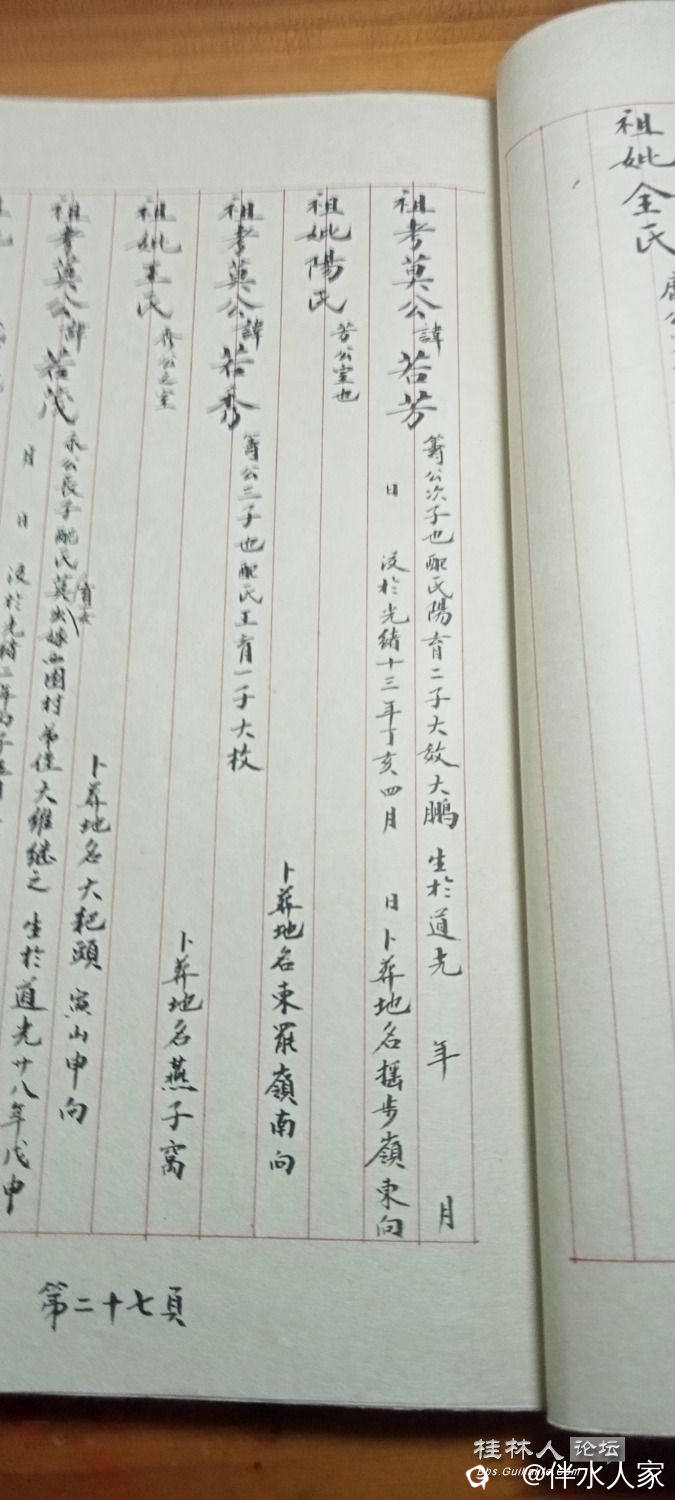 祖妣全氏
祖考莫公諱若芳 籌公次子也配氏陽育二子大效大鵬 生於道光 年 月
日 没於光緒十三年丁亥四月 日卜葬地名搖步嶺東向
祖妣陽氏 芳公室也
卜葬地名東罷嶺南向
祖考莫公諱若秀 籌公三子也配氏王育一子大枝
祖妣王氏 秀公之室
卜葬地名燕子窩
卜葬地名大耙頭 寅山申向
祖考莫公諱若茂 公長子配氏莫育女出嫁西圍村弟侄大維继之 生於道光廿八年戊申
月 日 没於光緒二年丙子
第二十七頁
桂林人论坛
bbs.Guilinlife.com
@伴水人家